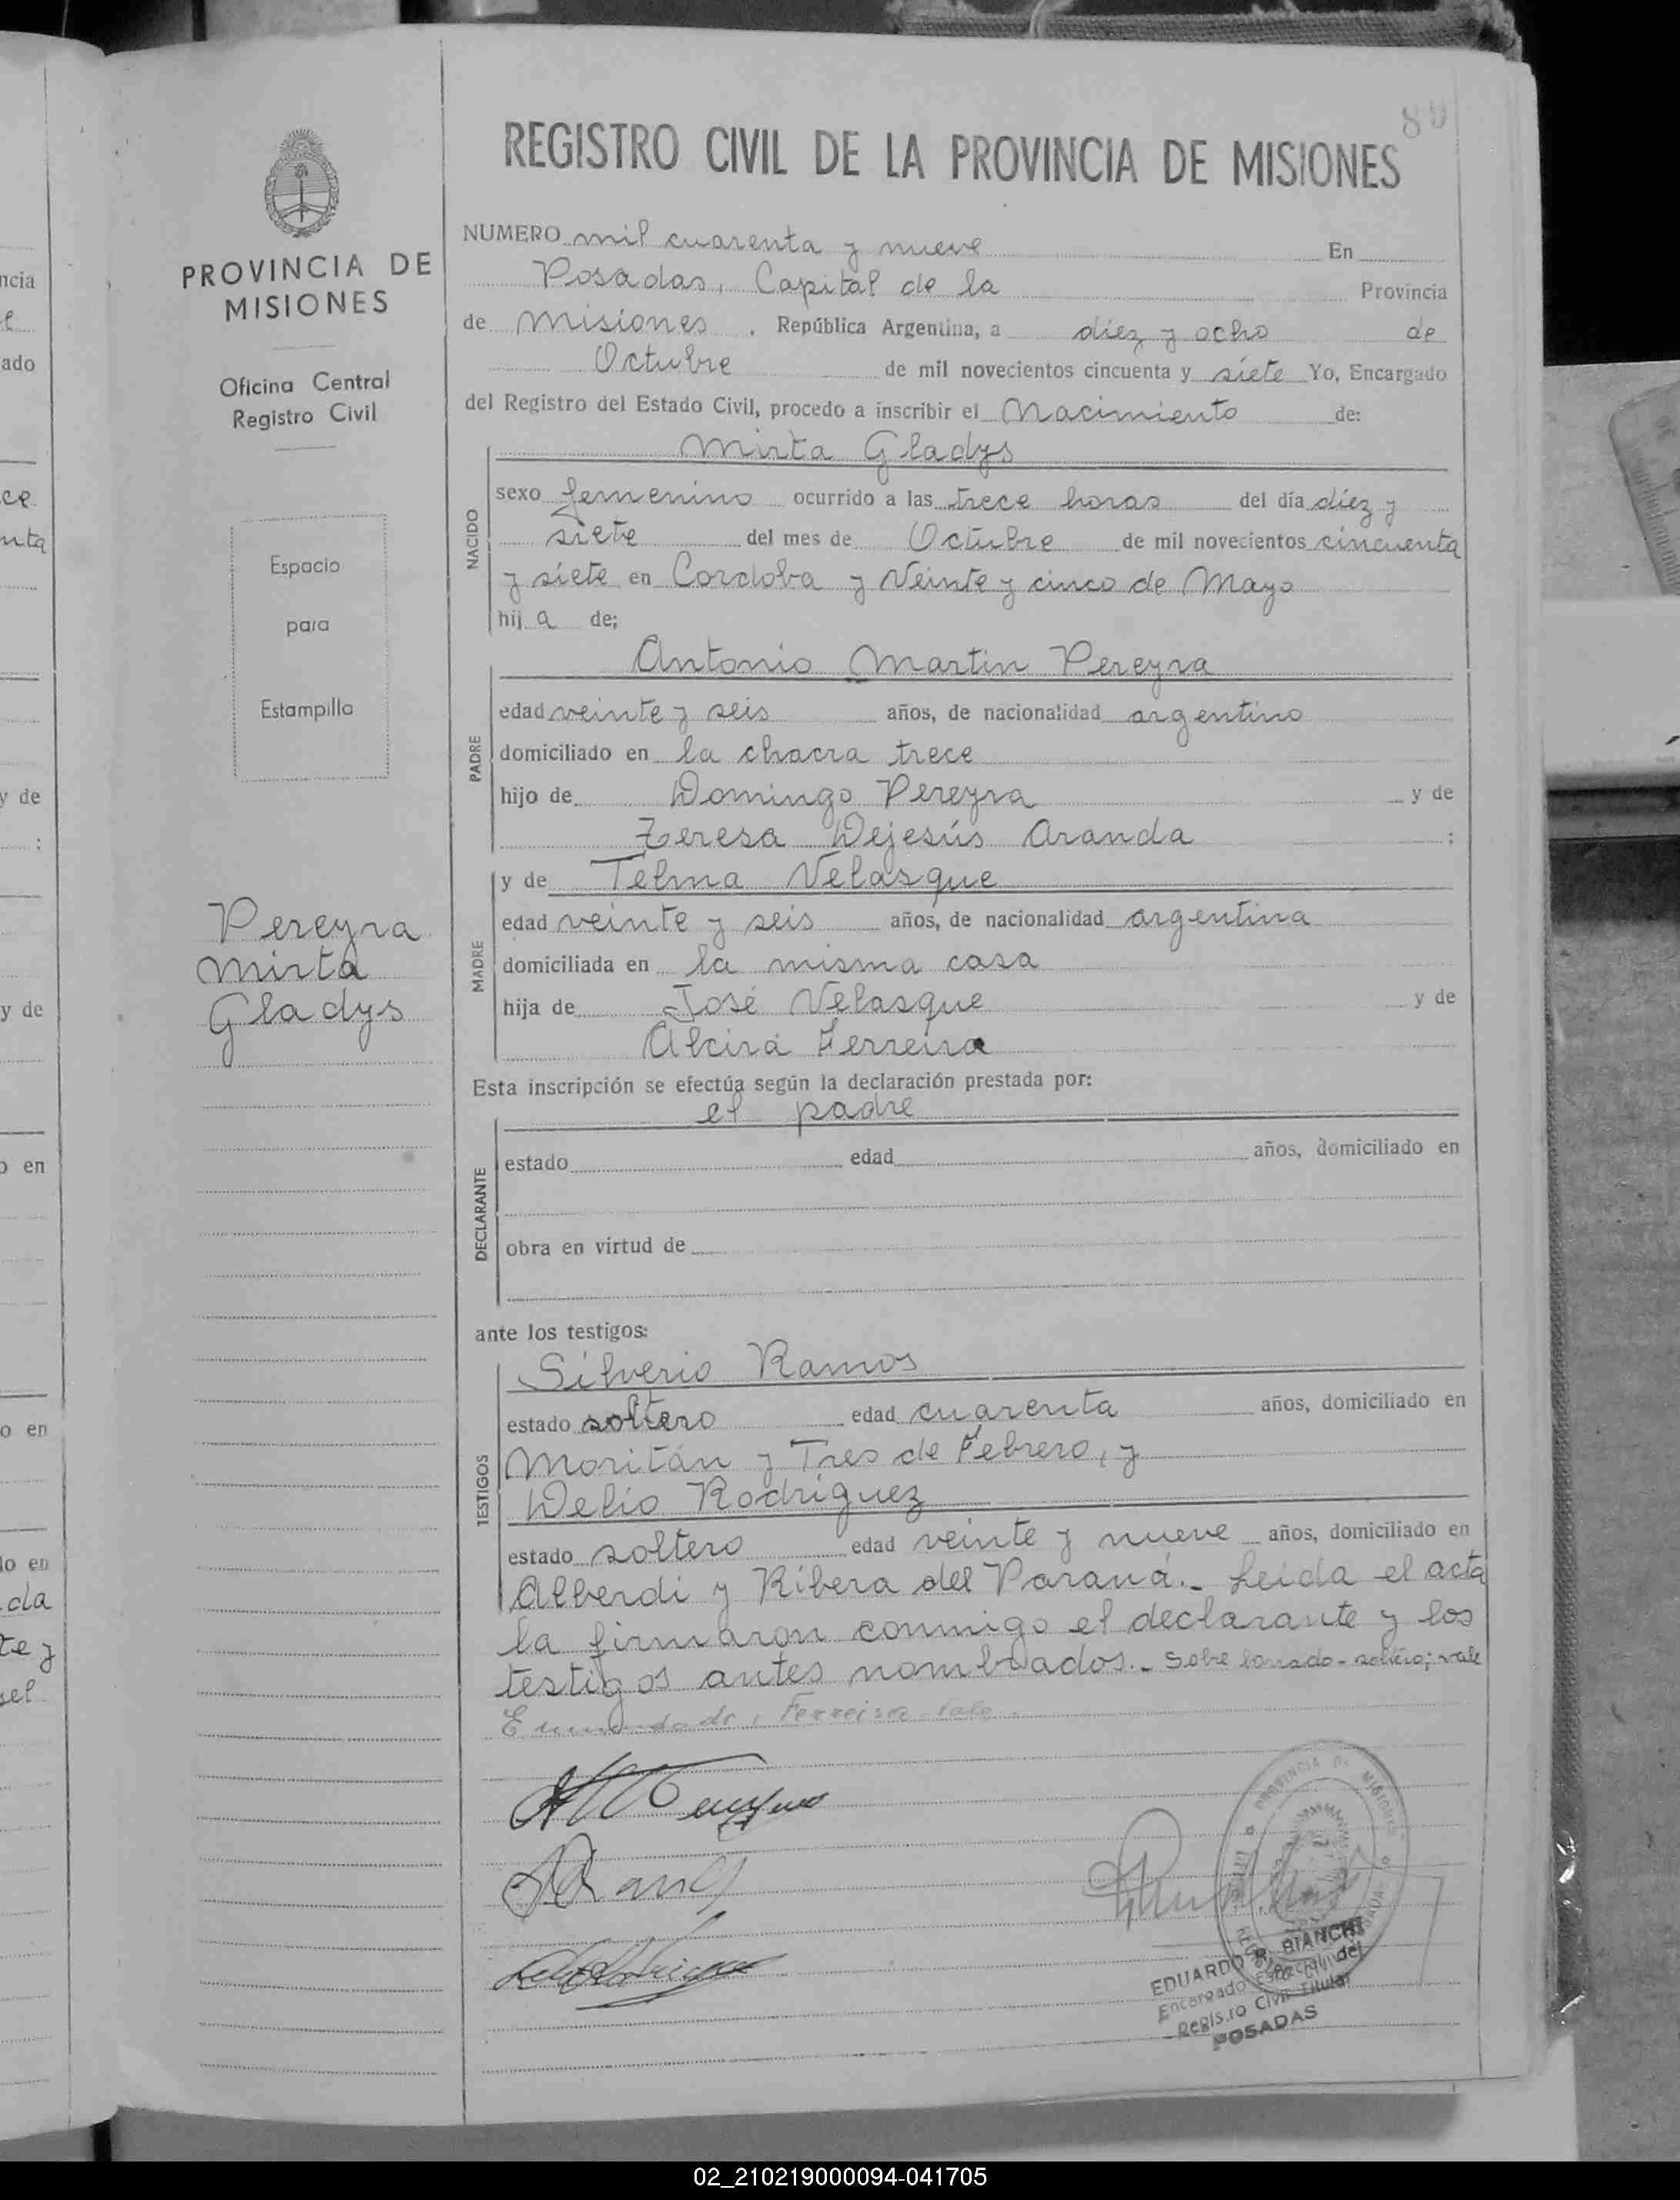 80
REGISTRO CIVIL DE LA PROVINCIA DE MISIONES
PROVINCIA DE
MISIONES
Oficina Central
Registro Civil
Espacio
para
Estampilla
Pereyra
Mirta
Gladys
NUMERO mil cuarenta y nueve En
Posadas, Capital de la Provincia
de Misiones, República Argentina, a diez y ocho de
Octubre de mil novecientos cincuenta y siete Yo, Encargado
del Registro del Estado Civil, procedo a inscribir el Nacimiento de:
Mirta Gladys
NACIDO
sexo femenino ocurrido a las trece horas del día diez y
siete del mes de Octubre de mil novecientos cincuenta
y siete en Cordoba y Veinte y cinco de Mayo
hija de;
Antonio Martin Pereyra
PADRE
edad veinte y seis años, de nacionalidad argentino
domiciliado en la chacra trece
hijo de Domingo Pereyra y de
Teresa Dejesús Aranda ;
y de Telma Velasque
MADRE
edad veinte y seis años, de nacionalidad argentina
domiciliada en la misma casa
hija de José Velasque y de
Alcira Ferreira
Esta inscripción se efectúa según la declaración prestada por:
el padre
DECLARANTE
estado edad años, domiciliado en
obra en virtud de
ante los testigos:
Silverio Ramos
TESTIGOS
estado soltero edad cuarenta años, domiciliado en
Moritán y Tres de Febrero, y
Delio Rodríguez
estado soltero edad veinte y nueve años, domiciliado en
Alberdi y Ribera del Paraná.- Leida el acta
la firmaron conmigo el declarante y los
testigos antes nombrados.- Sobre borrado - soltero; vale
Enmendado, Ferreira - vale.
PROVINCIA DE MISIONES
EDUARDO R. BIANCHI
Encargado Especial del
Registro Civil Titular
POSADAS
ncia
ado
ce
nta
y de
:
y de
o en
o en
lo en
da
te y
del
02_210219000094-041705